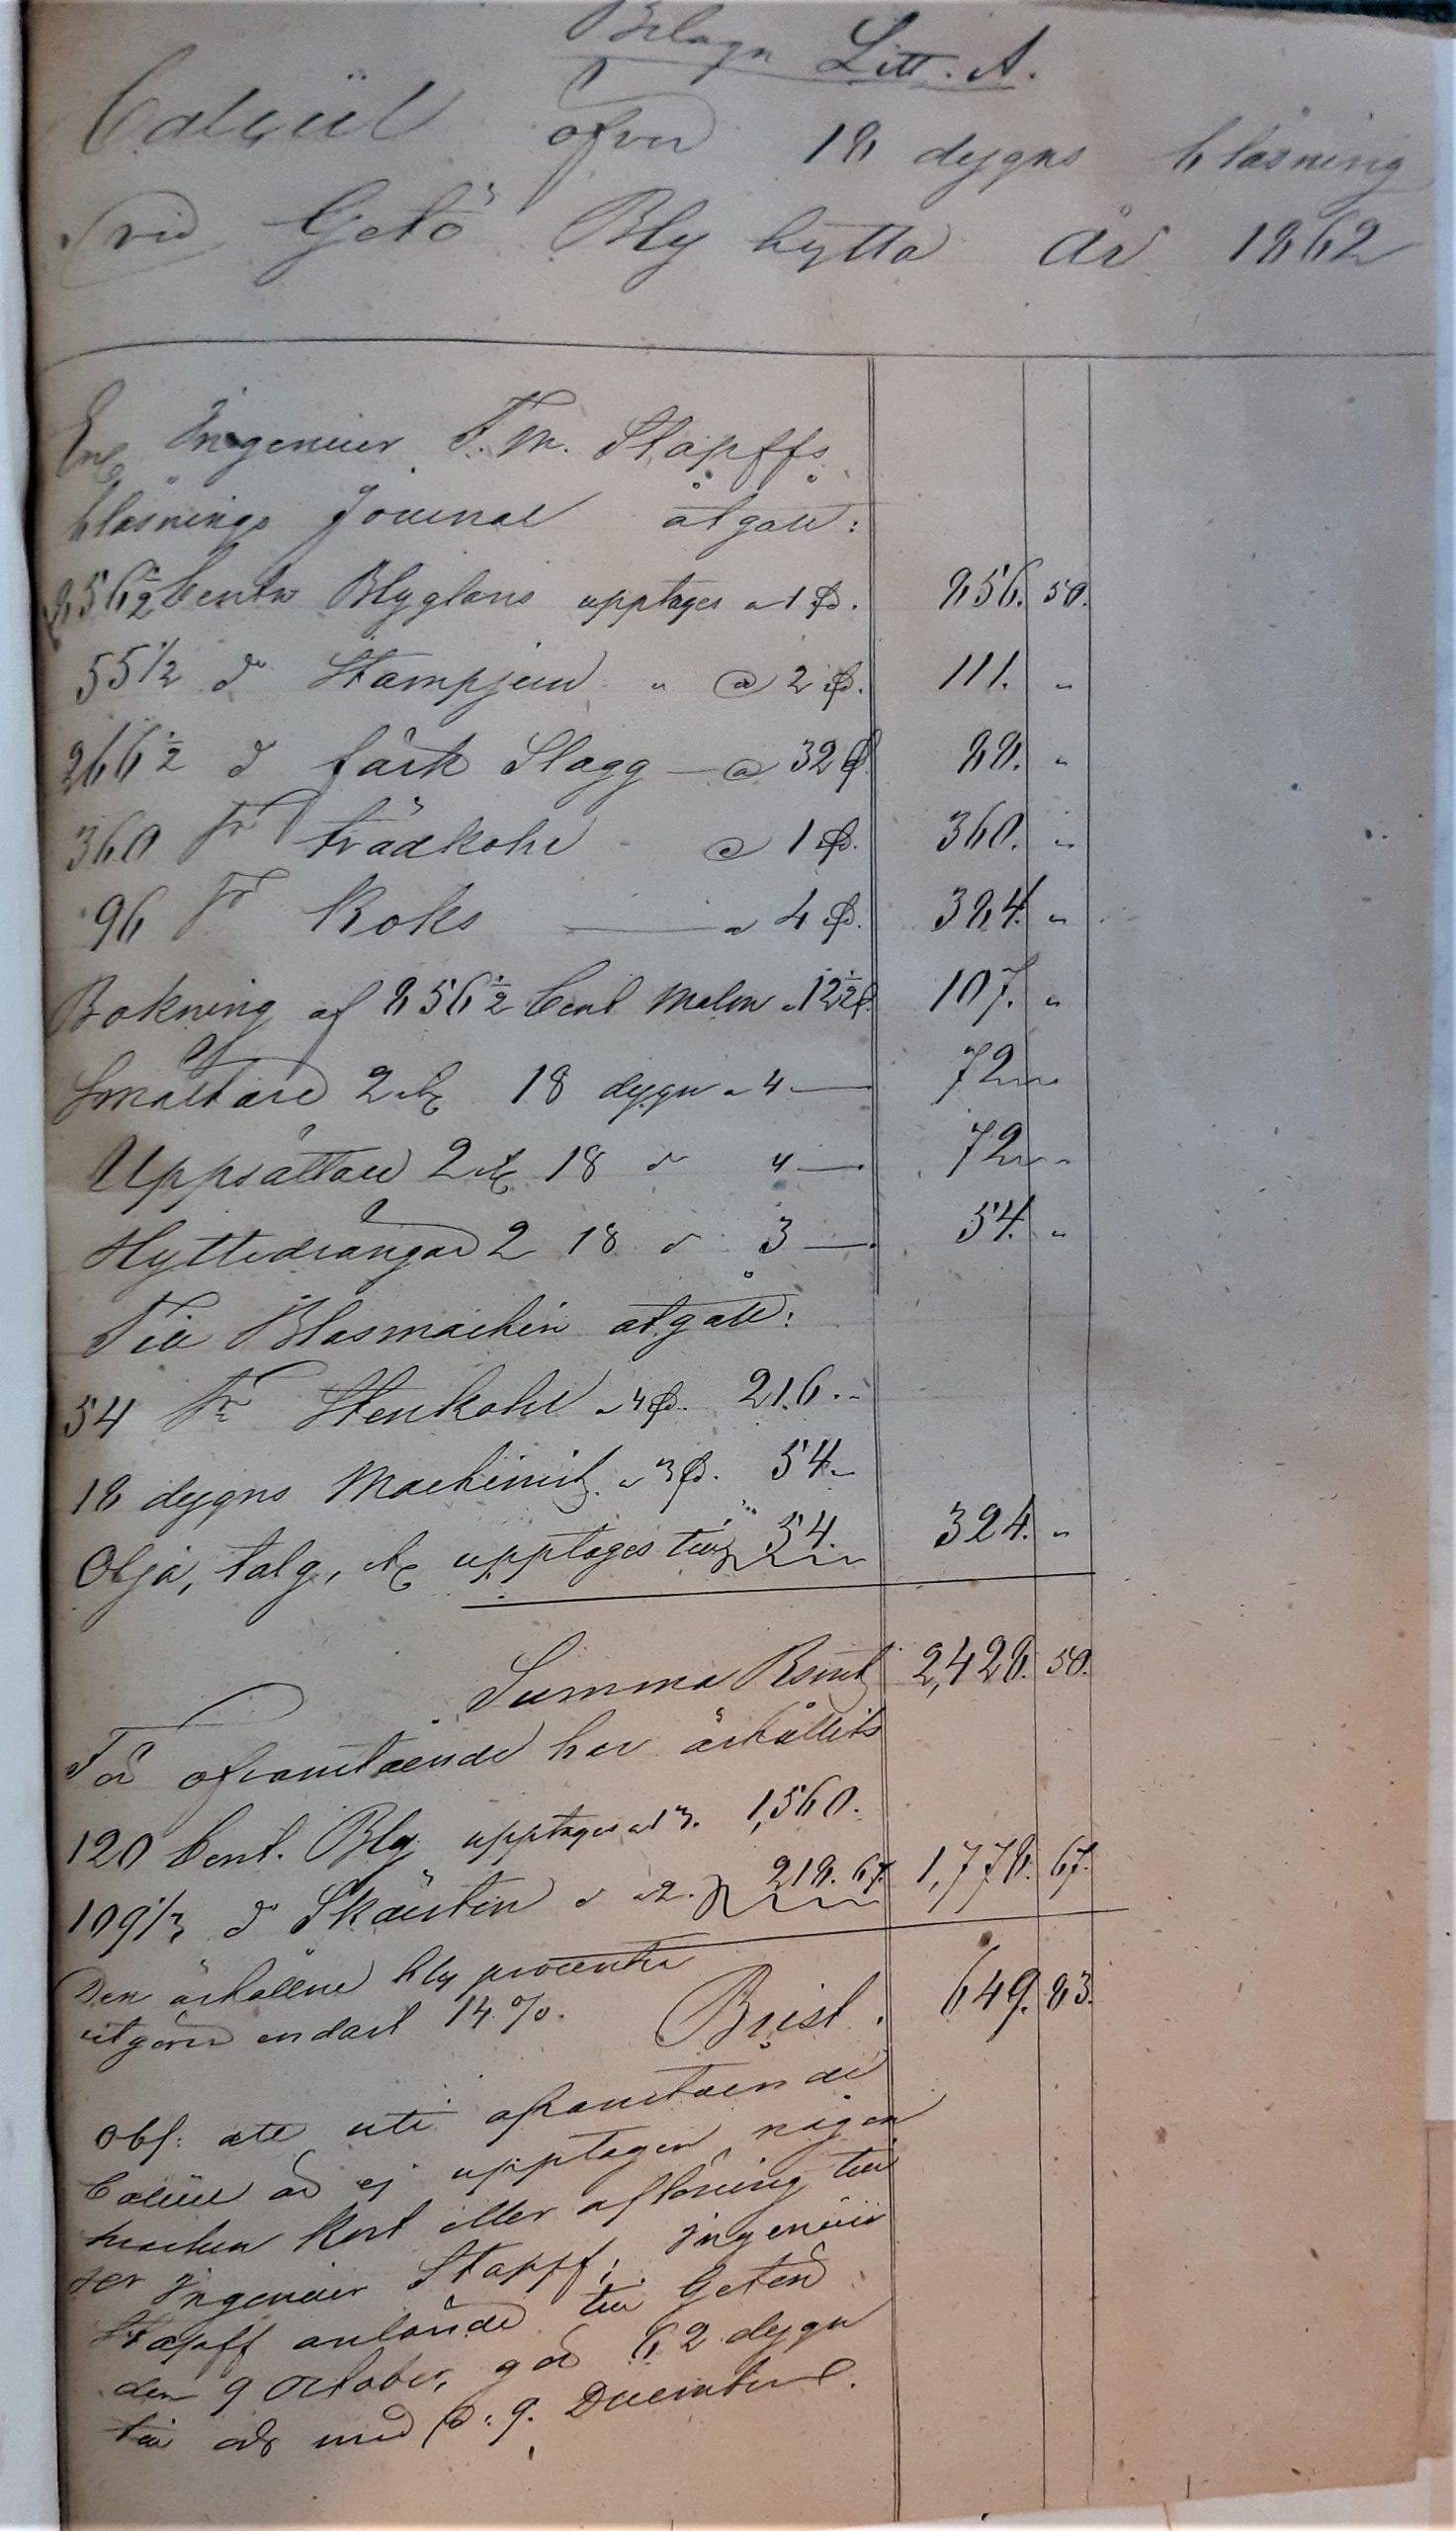 Bilaga Litt. A.
Calcül öfver 18 dygns blåsning
vid Getö Bly hytta år 1862
Enl Ingenieur F. M. Stapffs
blåsnings Journal åtgått:
856 1/2 Centn Blyglans upptages a 1 Rd. 856. 50.
55 1/2 do Stampjern " @ 2 Rd. 111. "
266 1/2 d färsk Slagg — @ 32 88. "
360 Tr trädkohl @ 1 Rd. 360. "
96 Tr Koks — a 4 Rd. 384. "
Bokning af 856 1/2 Cent Malm a 12 1/2 107. "
Smältare 2 st 18 dygn a 4 — 72 "
Uppsättare 2 st 18 d 4 — 72 "
Hyttedrängar 2 18 d 3 — 54. "
Till Blasmachin åtgått:
54 Tr Stenkohl a 4 Rd. 216. "
18 dygns Machinist a 3 Rd. 54. "
Olja, talg, etc upptages till 54. 324. "
Summa Rmt 2,428. 50.
För ofvanstående har erhållits
120 Cent. Bly upptages a 13. 1,560.
109 1/3 do Skärsten d a 2. 218. 67. 1,778. 67.
Den erhållne bly procenten
utgörer endast 14 %. Brist. 649. 83.
Obs: att uti ofvanstående
Calcül är ej upptagen någon
hvarken kost eller aflöning till
Herr Ingenieur Stapff; Ingenieur
Stapff anlände till Getön
den 9 October, gör 62 dygn
till och med d: 9. December.